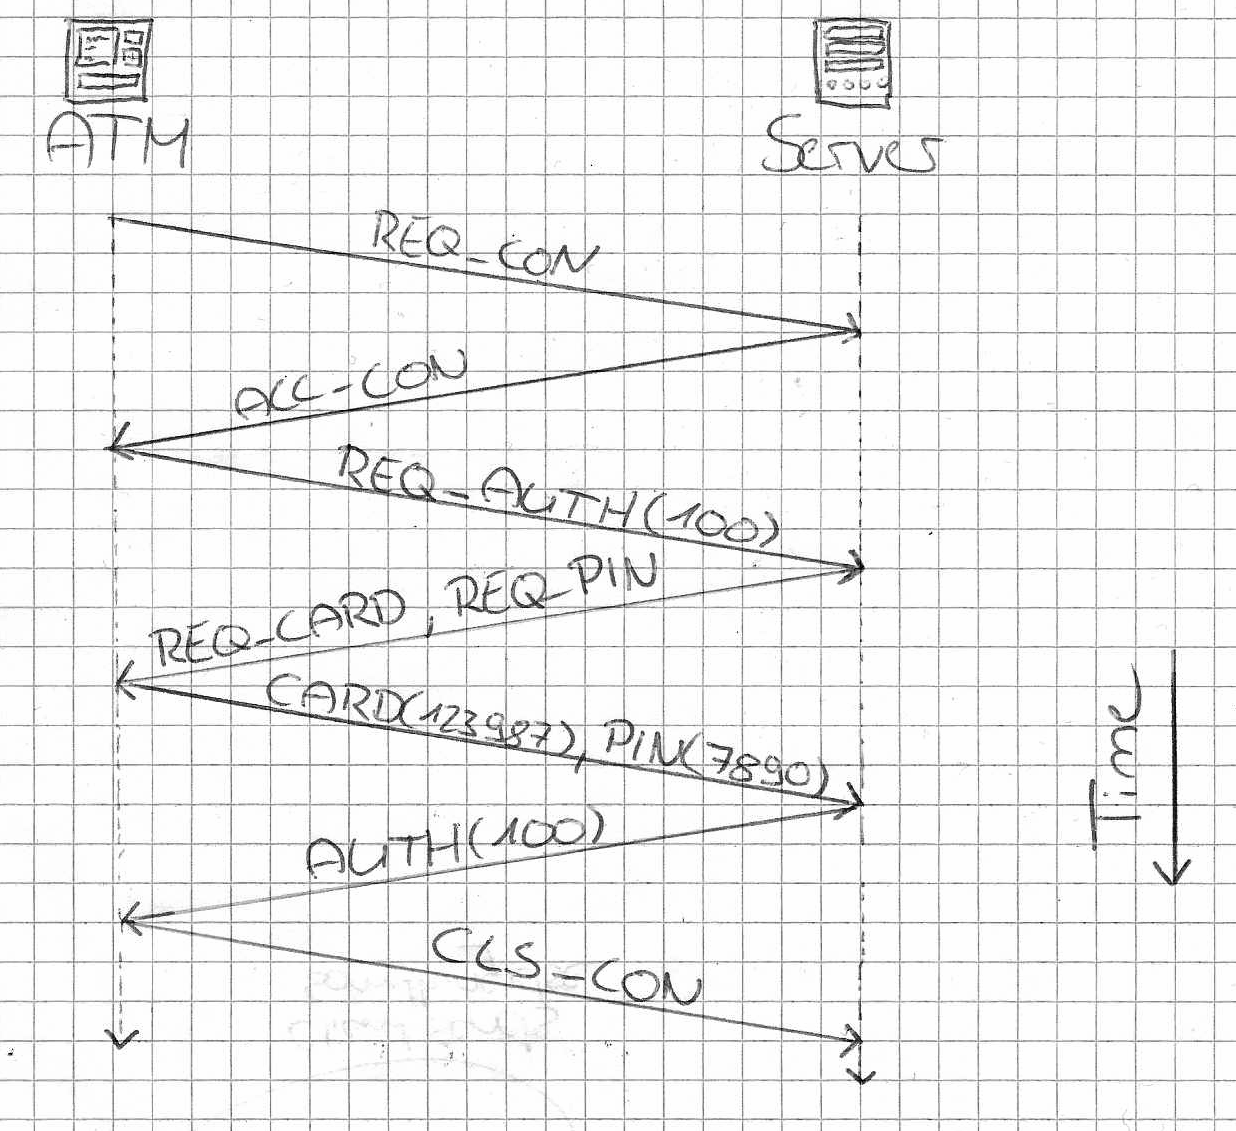 ATM
Server
REQ_CON
ACC-CON
REQ_AUTH(100)
REQ-CARD, REQ_PIN
CARD(123987), PIN(7890)
AUTH(100)
CLS_CON
Time